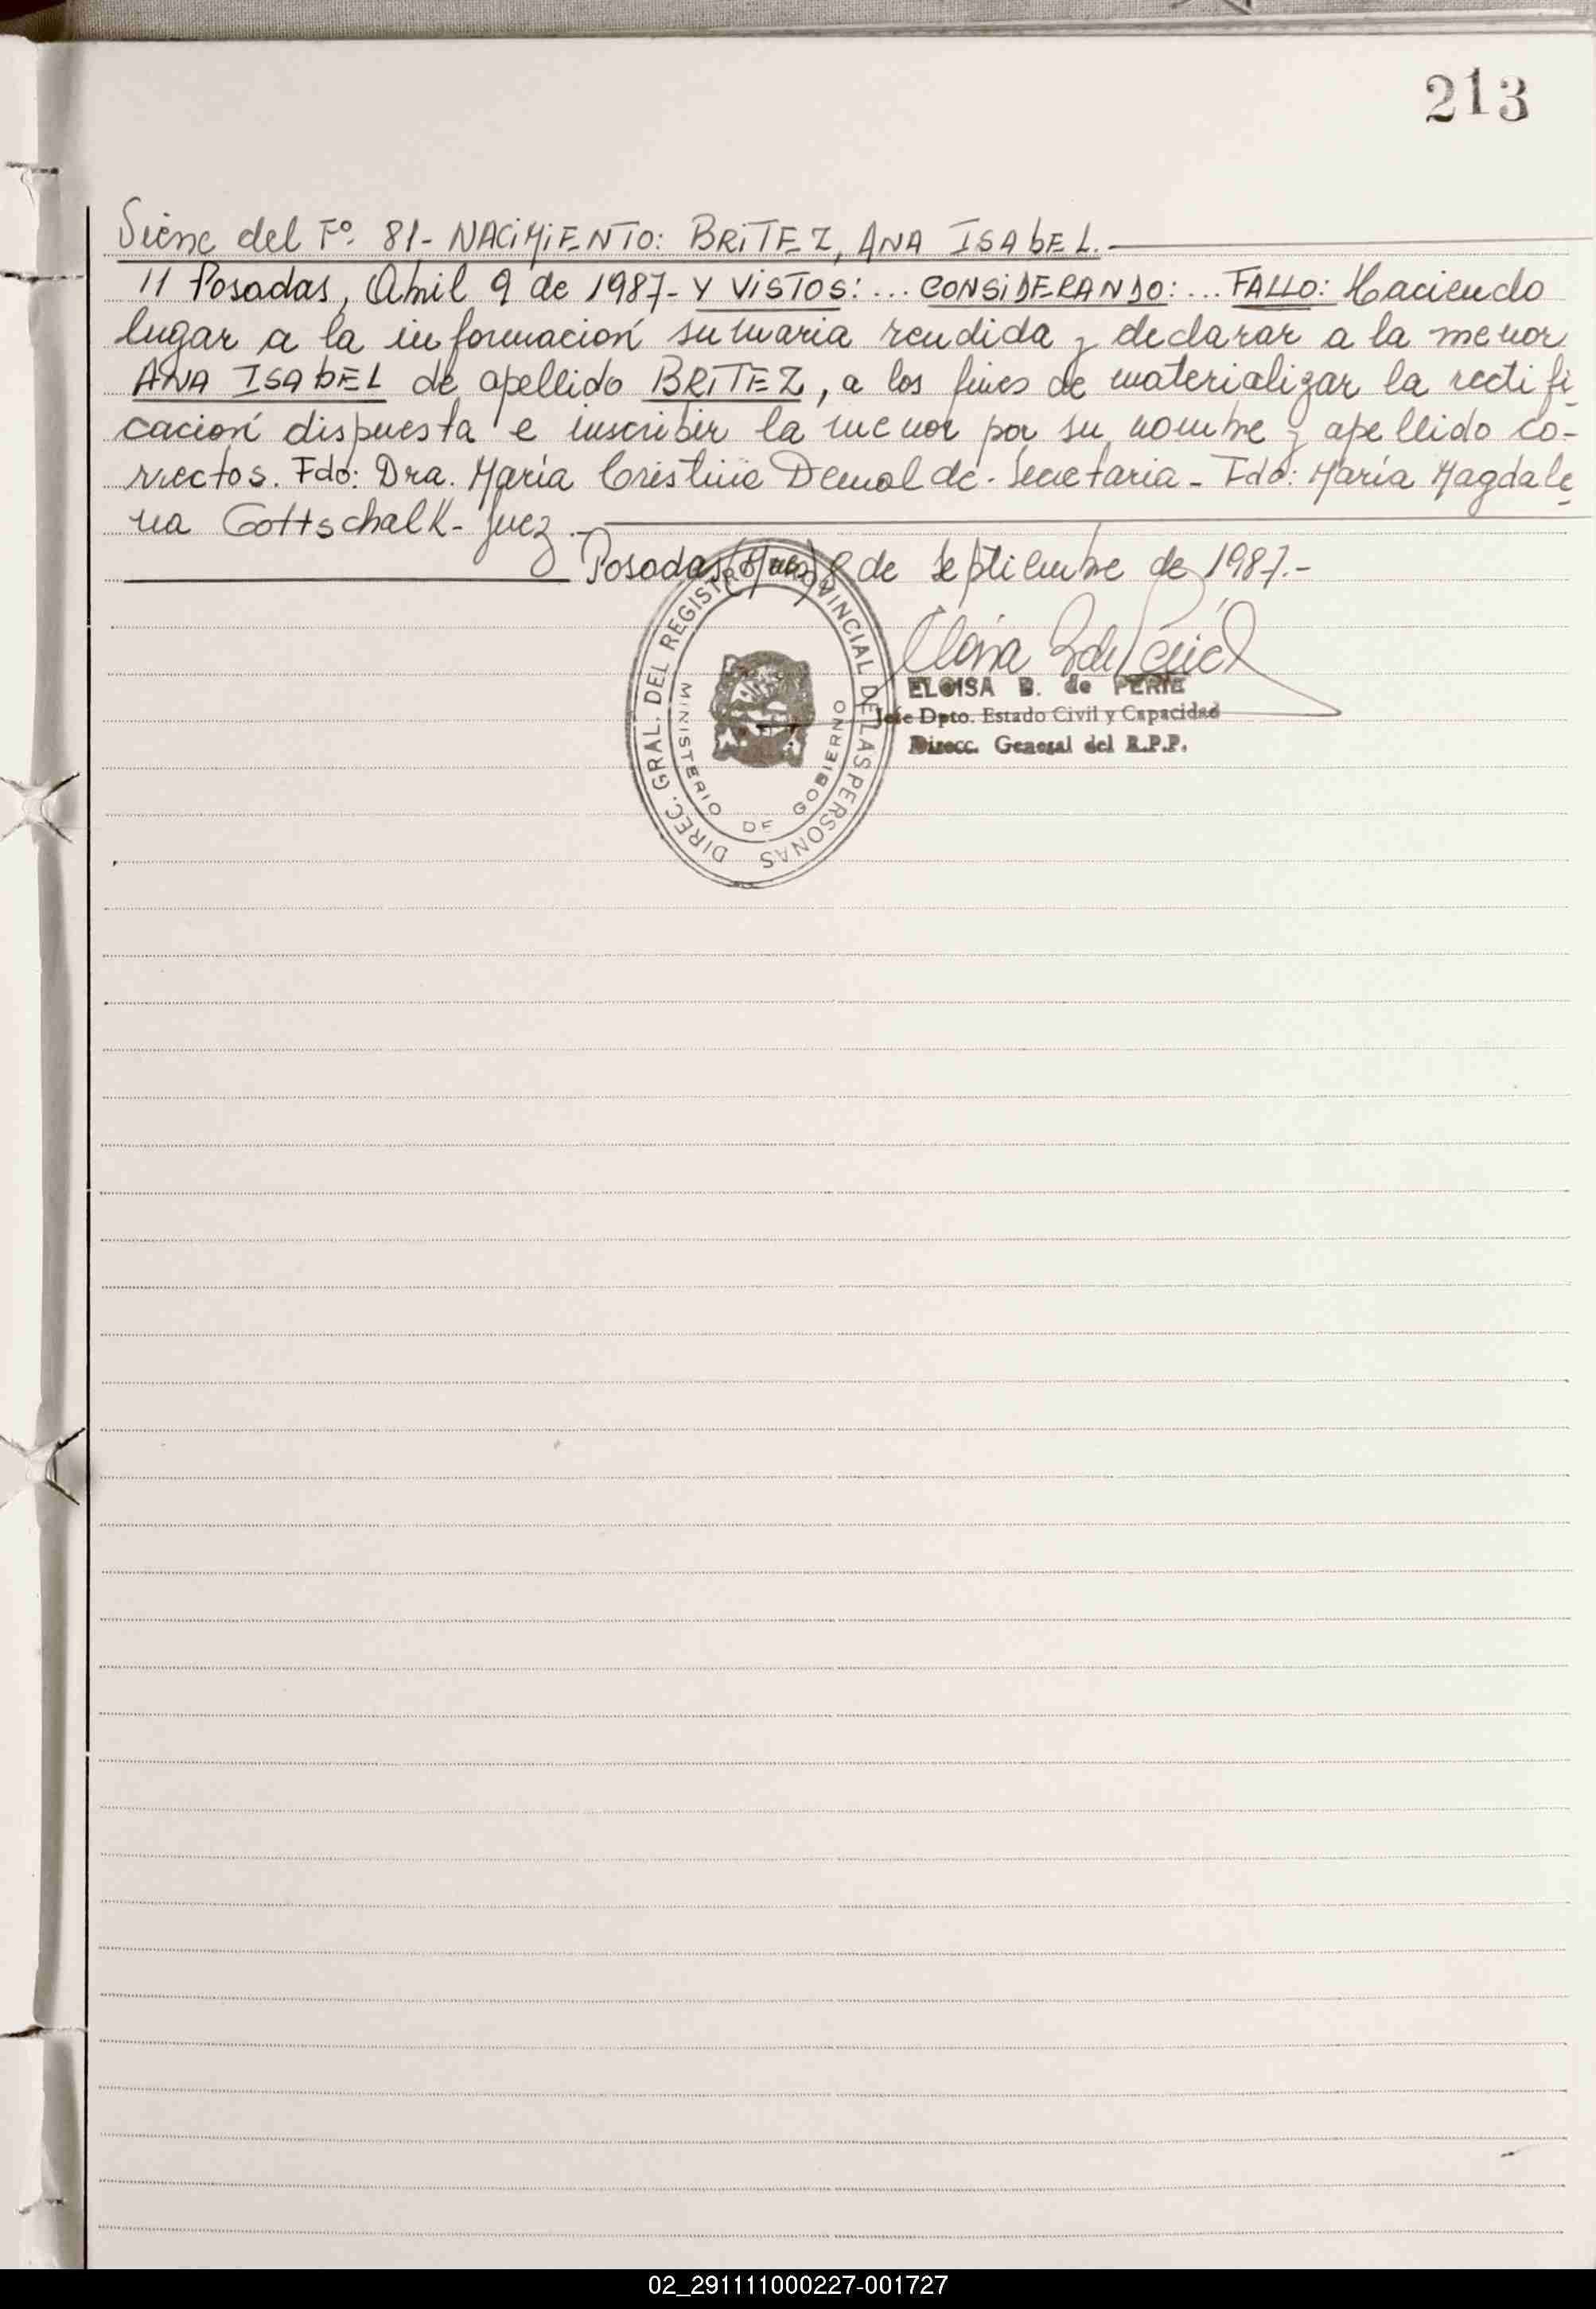 213
Viene del Fº. 81- NACIMIENTO: BRITEZ, ANA ISABEL.
11 Posadas, Abril 9 de 1987- Y VISTOS:... CONSIDERANDO:... FALLO: Haciendo
lugar a la información sumaria rendida y declarar a la menor
ANA ISABEL de apellido BRITEZ, a los fines de materializar la rectifi
cación dispuesta e inscribir la menor por su nombre y apellido co-
rrectos. Fdo: Dra. María Cristina de. Secretaria - Fdo: María Magdale
na Gottschalk- Juez.-
Posadas (Mnes) 8 de Septiembre de 1987.-
DIREC. GRAL. DEL REGISTRO PROVINCIAL DE LAS PERSONAS
MINISTERIO DE GOBIERNO
ELOISA B. de PERIE
Jefe Dpto. Estado Civil y Capacidad
Direcc. General del R.P.P.
02_291111000227-001727